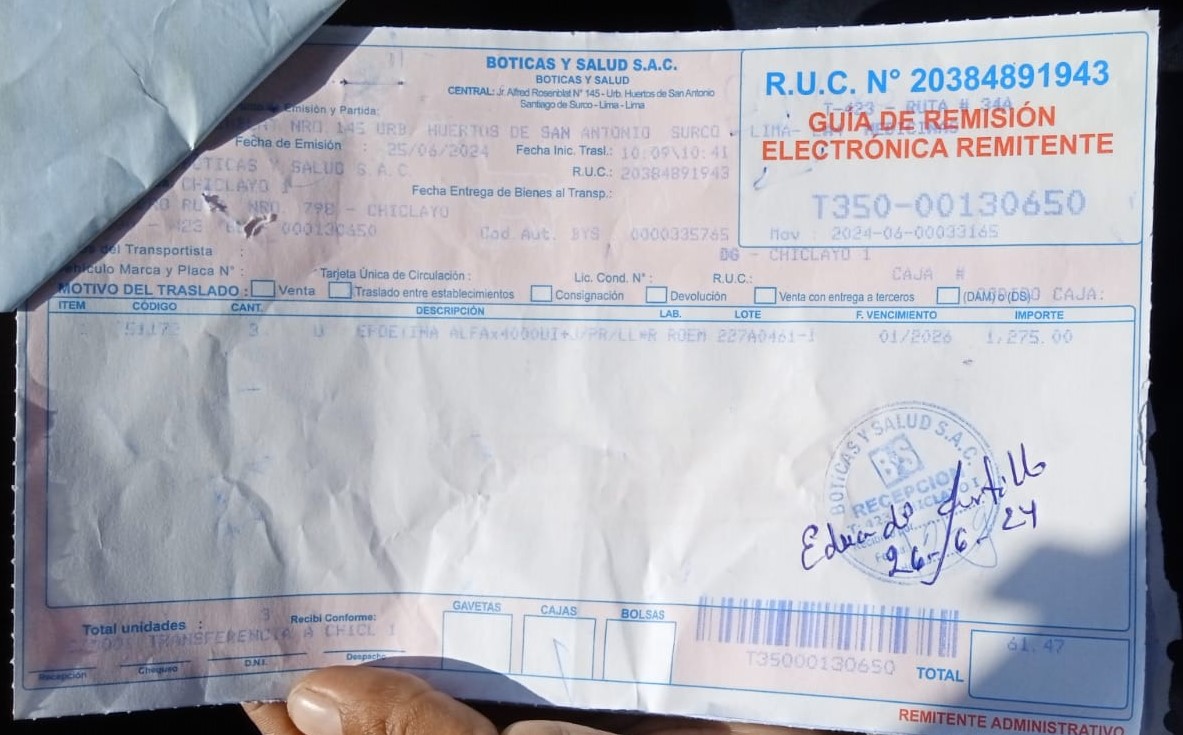 BOTICAS Y SALUD S.A.C.
BOTICAS Y SALUD
CENTRAL: Jr. Alfred Rosenblat N° 145 - Urb. Huertos de San Antonio
Santiago de Surco - Lima - Lima
R.U.C. N° 20384891943
T-423 - RUTA # 34A
GUÍA DE REMISIÓN
ELECTRÓNICA REMITENTE
T350-00130650
Mov : 2024-06-00033165
Emisión y Partida:
NRO. 145 URB/ HUERTOS DE SAN ANTONIO SURCO - LIMA-
Fecha de Emisión : 25/06/2024 Fecha Inic. Trasl.: 10:09\10:41
BOTICAS Y SALUD S.A.C R.U.C.: 20384891943
CHICLAYO 1 Fecha Entrega de Bienes al Transp.:
NRO. 798 - CHICLAYO
423 000130650 Cod Aut. BYS 0000335765
del Transportista : DG - CHICLAYO 1
Vehículo Marca y Placa N° : Tarjeta Única de Circulación : Lic. Cond. N° : R.U.C.: CAJA #
MOTIVO DEL TRASLADO : Venta Traslado entre establecimientos Consignación Devolución Venta con entrega a terceros (DAM) o (DS) CAJA:
ITEM CÓDIGO CANT. DESCRIPCIÓN LAB. LOTE F. VENCIMIENTO IMPORTE
51173 3 U EPOETINA ALFAx4000UI+J/PR/LL*R ROEM 227A0461-1 01/2026 1,275.00
BOTICAS Y SALUD S.A.C.
BS
RECEPCION
T. 423 CHICLAYO I
Eduardo
26-6-24
Total unidades : 3 Recibí Conforme:
TRANSFERENCIA A CHICL 1
Recepción Chequeo D.N.I. Despacho
GAVETAS CAJAS BOLSAS
T35000130650
TOTAL 61.47
REMITENTE ADMINISTRATIVO